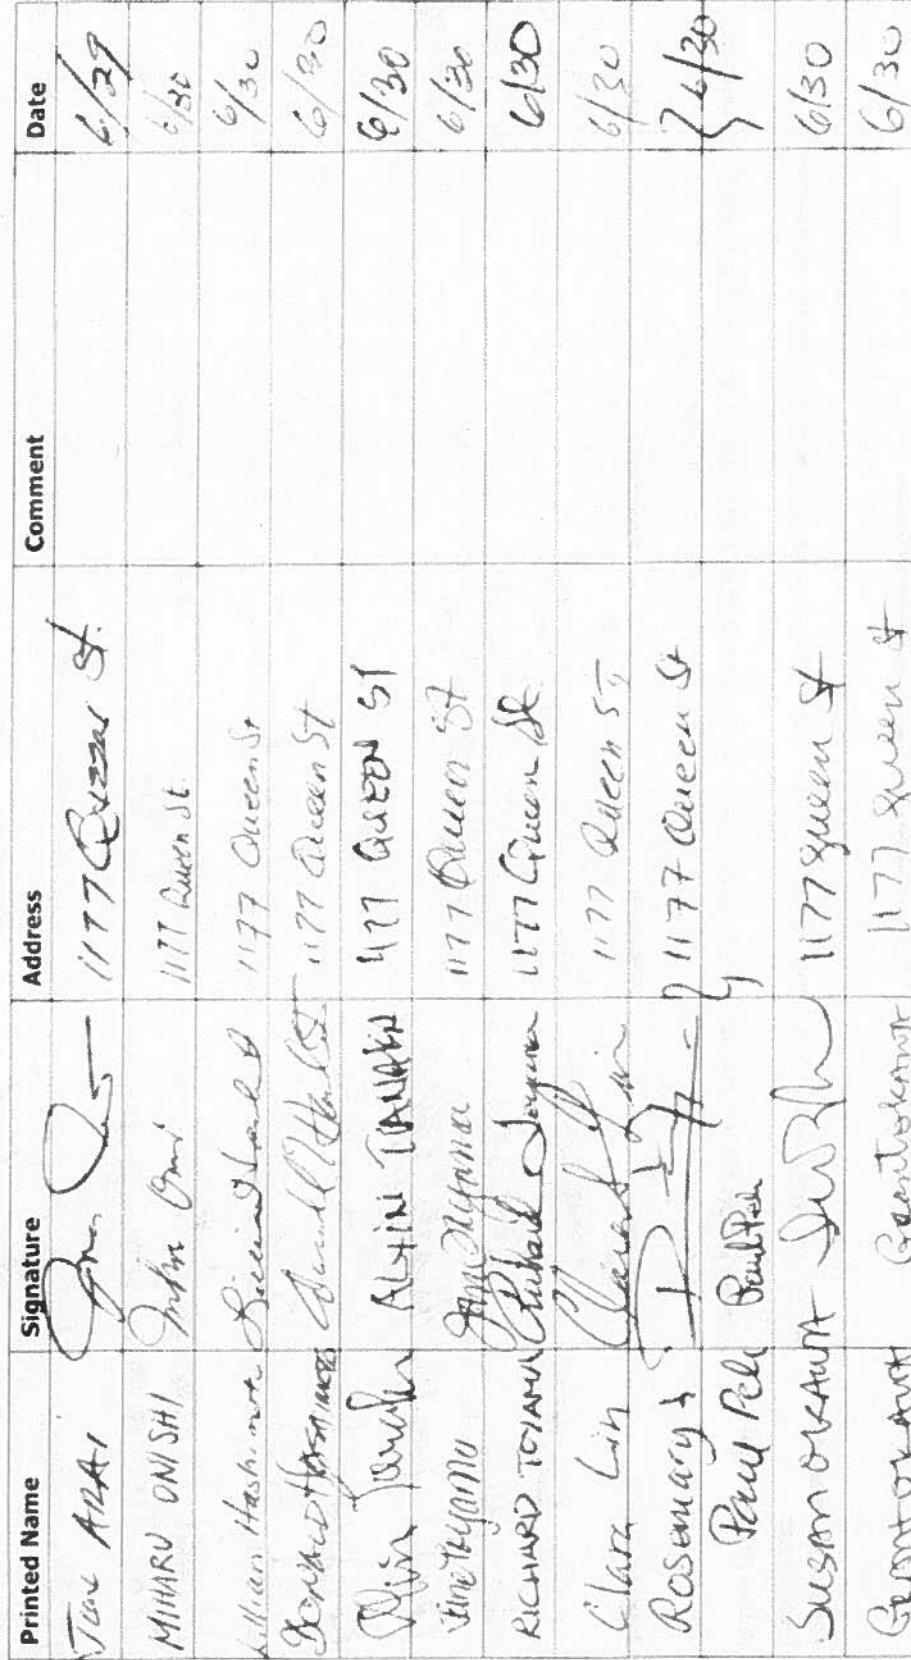 Printed Name Signature Address Comment Date
ARAI 1177 Queen St. 6/29
MIHARU ONISHI 1177 Queen St. 6/30
Lillian Hashimoto 1177 Queen St 6/30
DONALD HASHIMOTO 1177 Queen St 6/30
Alvin Tanaka ALVIN TANAKA 1177 QUEEN ST 6/30
Jane Toyama Jane Toyama 1177 Queen St 6/30
RICHARD TOYAMA Richard Toyama 1177 Queen St. 6/30
Clara Lin Clara Lin 1177 Queen St 6/30
Rosemary & } 1177 Queen St } 6/30
Paul Paul
SUSAN OKAWA 1177 Queen St 6/30
GRANT OKAWA Grant Okawa 1177 Queen St 6/30